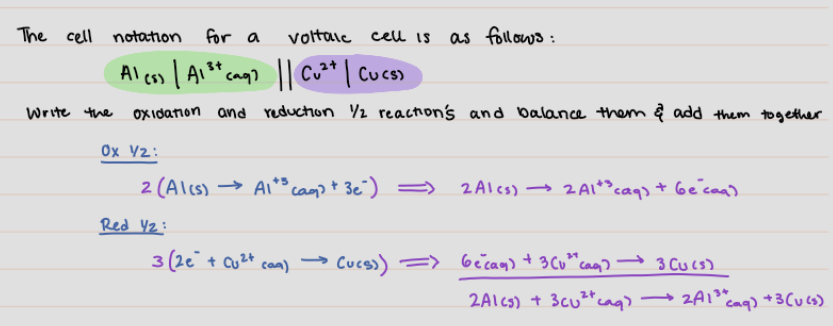 The cell notation for a voltaic cell is as follows:
Al(s) | Al³⁺(aq) || Cu²⁺ | Cu(s)
Write the oxidation and reduction 1/2 reaction's and balance them & add them together
Ox 1/2:
2(Al(s) → Al⁺³(aq) + 3e⁻) ⟹ 2Al(s) → 2Al⁺³(aq) + 6e⁻(aq)
Red 1/2:
3(2e⁻ + Cu²⁺(aq) → Cu(s)) ⟹ 6e⁻(aq) + 3Cu²⁺(aq) → 3Cu(s)
2Al(s) + 3Cu²⁺(aq) → 2Al³⁺(aq) + 3Cu(s)